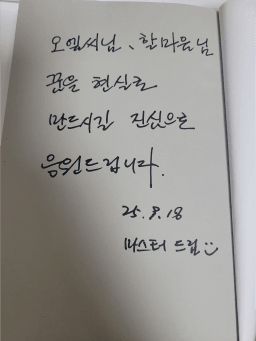 오엘씨님, 한마음님
꿈을 현실로
만드시길 진심으로
응원드립니다.
25.9.18
마스터 드림